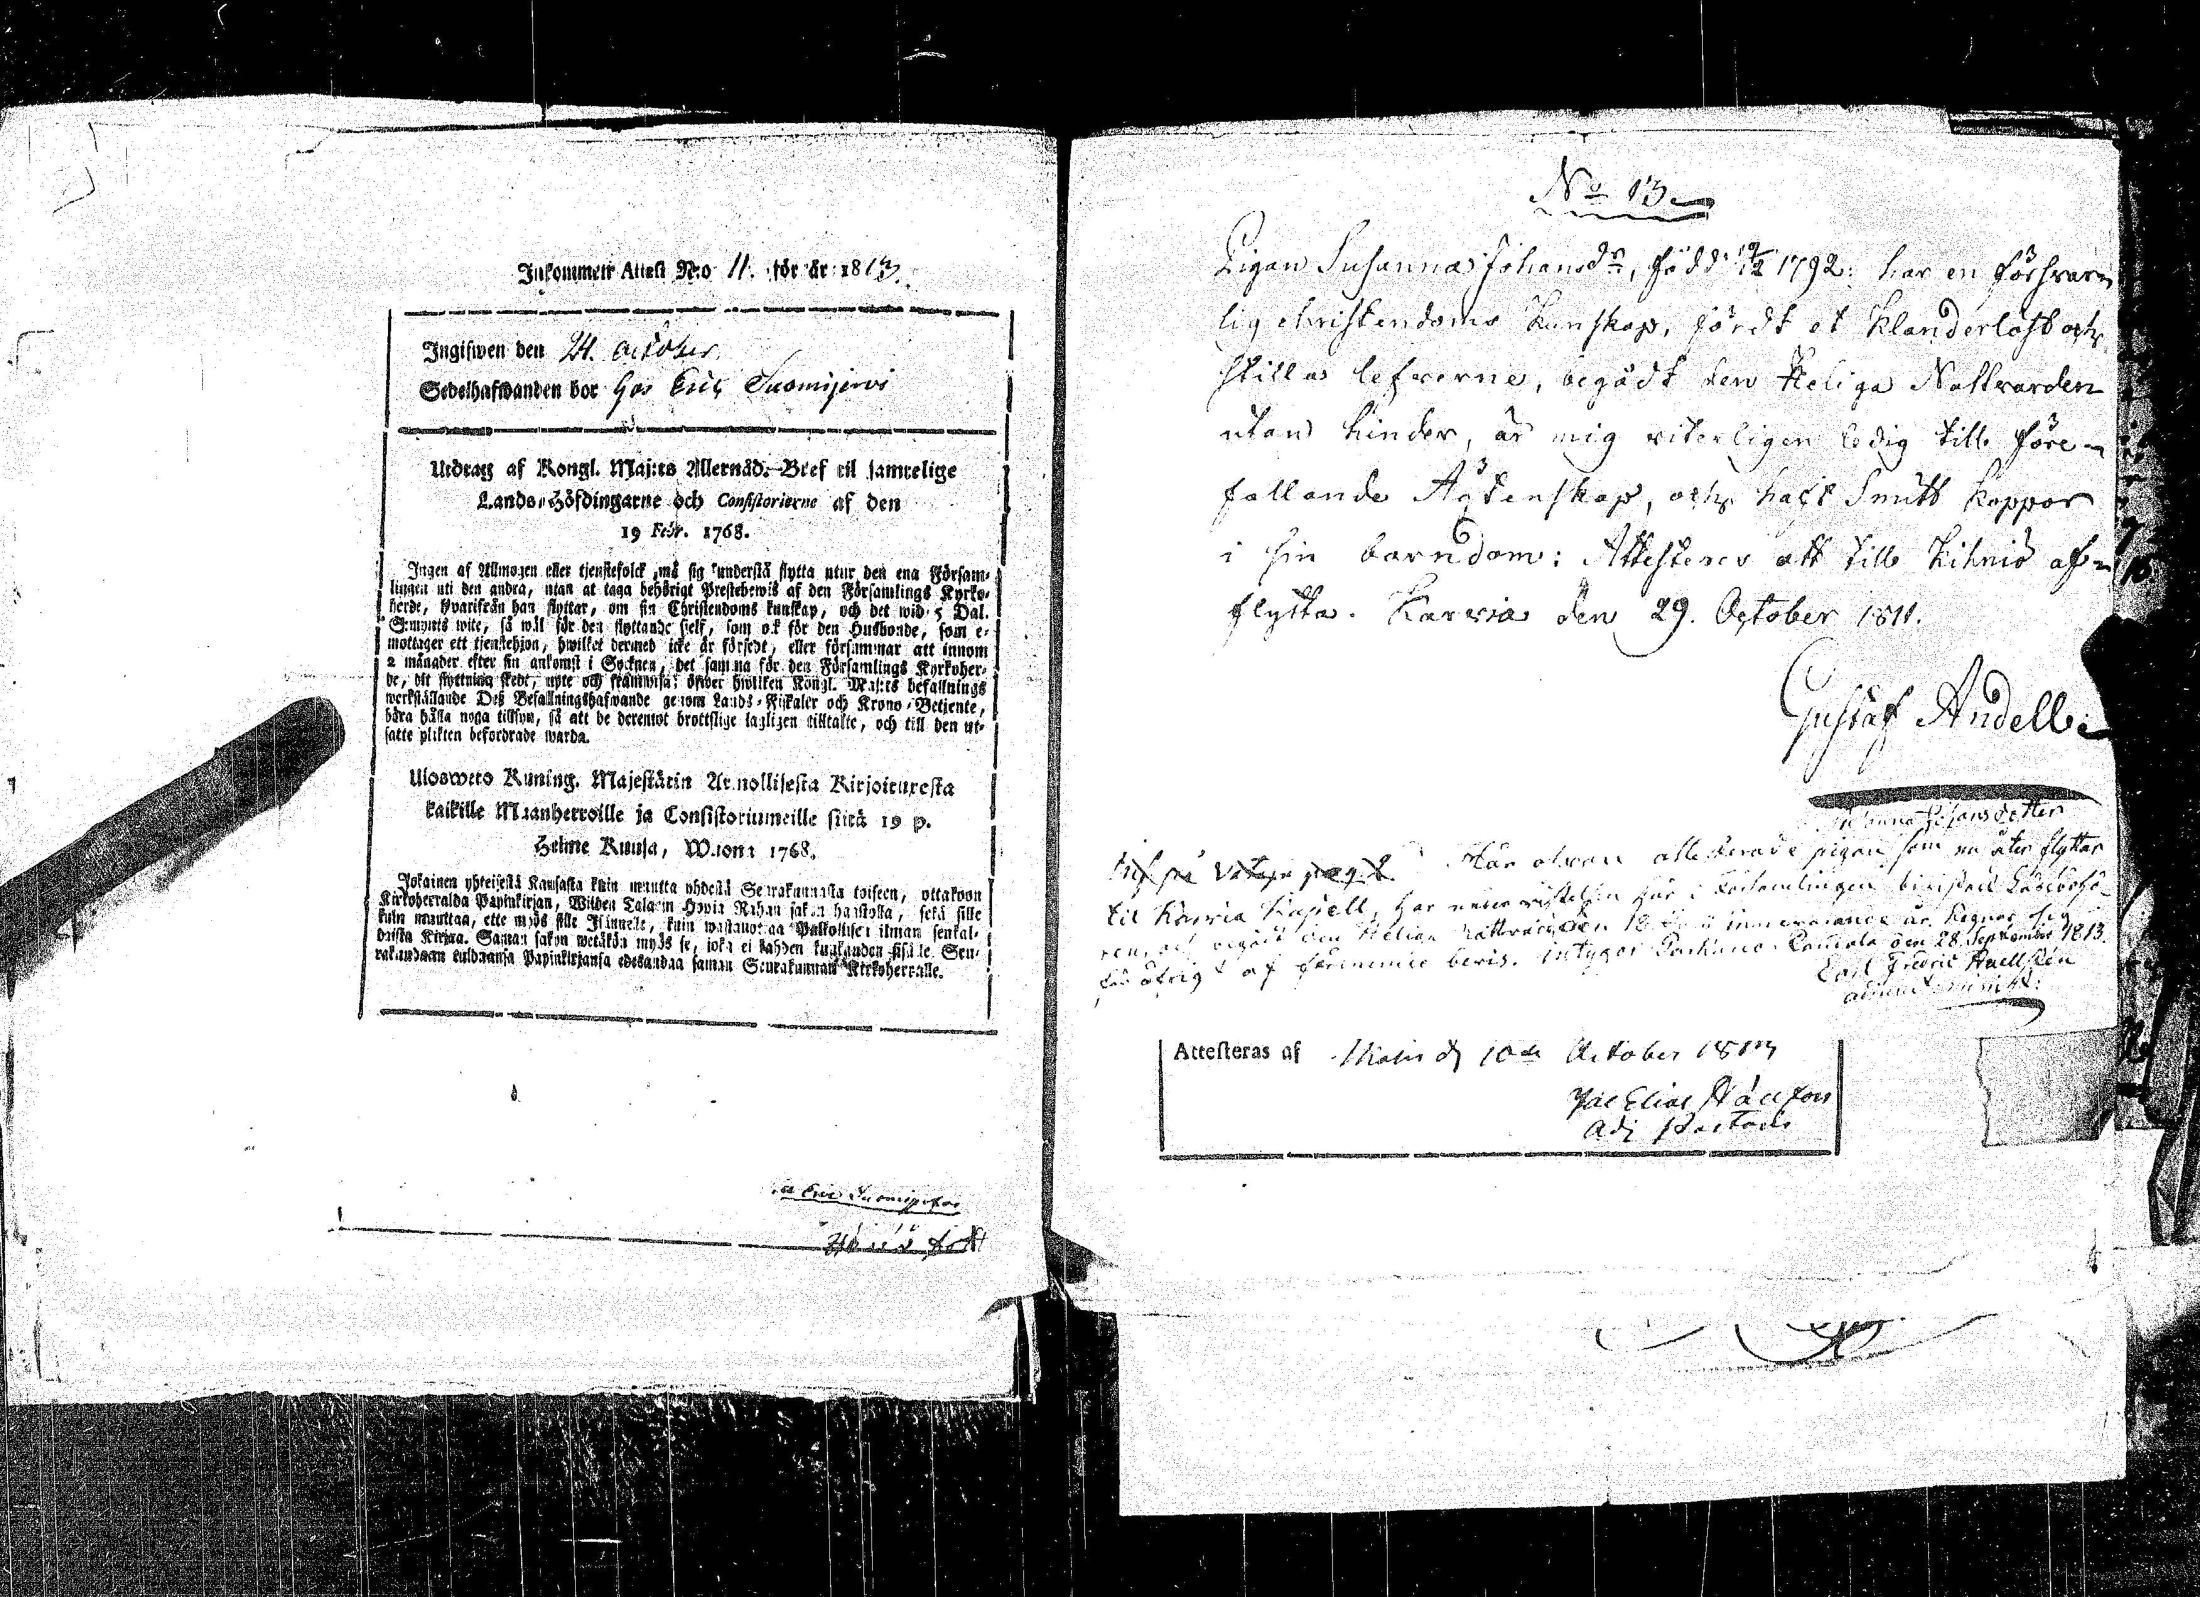 Inkommen Attest N:o 11. för år 1813.
Ingifwen den 24. october
Sedelhafwanden bor hos Eric Suomijervi
Utdrag af Kongl. Maj:ts Allernåd. Bref til samtelige
Lands-Höfdingarne och Consistorierne af den
19 Febr. 1768.
Ingen af Allmogen eller tjenstefolck må sig understå flytta utur den ena Försam-
lingen uti den andra, utan at taga behörigt Prestebewis af den Församlings Kyrko-
herde, hvarifrån han flyttar, om sin Christendoms kunskap, och det wid 5 Dal.
S:mynts wite, så wäl för den flyttande sjelf, som ock för den Husbonde, som e-
mottager ett tjenstehjon, hwilket dermed icke är försedt, eller försummar att innom
2 månader efter sin ankomst i Socknen, det samma för den Församlings Kyrkoher-
de, dit flyttning skedt, upte och framwisa; öfwer hwilken Kongl. Maj:ts befallnings
werkställande Deß Befallningshafwande genom Lands-Fiskaler och Krono-Betjente,
böra hålla noga tillsyn, så att de deremot brottslige lagligen tilltalte, och till den ut-
satte plikten befordrade warda.
Uloswetto Kuning. Majestätin Armollisesta Kirjoituxesta
kaikille Maanherroille ja Consistoriumeille siitä 19 p.
Helme Kuusa, Wuonna 1768.
Jokainen yhteisestä Kansasta kuin muutta yhdestä Seurakunnasta toiseen, ottakoon
Kirkoherralda Papinkirjan, Wilden Talarin Hopia Rahan sakon haastolla, sekä sille
kuin muuttaa, ette myös sille Isännelle, kuin wastanottaa Palkollisen ilman senkal-
daista Kirjaa. Saman sakon wetäkön myös se, joka ei kahden kuukauden sisälle Seu-
rakundaan tulduansa Papinkirjansa edesandaa saman Seurakunnan Kirkoherralle.
Eric Suomijerfwi
No 13
Pigan Susanna Johansdr, född 1792: har en försvar-
lig christendoms kunskap, fördt et klanderlöst och
stilla lefverne, begådt den Heliga Nattvarden
utan hinder, är mig viterligen ledig till före-
fallande Äktenskap, och haft Smitt koppor
i sin barndom: Attesteres att till Kihniö af-
flytta. Karvia den 29. October 1811.
Gustaf Andell
Susanna Johansdotter
Här ofvan attesterade pigan som nu åter flyttar
til Karvia Kapell, har under vistelsen här i Församlingen bivistat Läseförhö-
ren, och begådt den Heliga Nattvarden innevarande år. Hegnar sig
för öfrigt af förenämde bevis. intygar Parkano den 28 September 1813.
Carl Fredric
Attesteras af 10de October 1813
Jac Elias
Adj